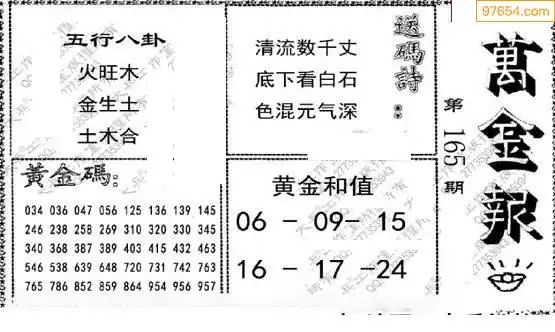 97654.com
萬金報
第165期
送碼詩：
清流数千丈
底下看白石
色混元气深
五行八卦
火旺木
金生土
土木合
黃金碼：
034 036 047 056 125 136 139 145
246 238 258 269 310 320 330 345
340 368 387 389 403 415 432 463
546 538 639 648 720 731 742 763
765 786 852 859 864 954 956 957
黄金和值
06 - 09- 15
16 - 17 -24